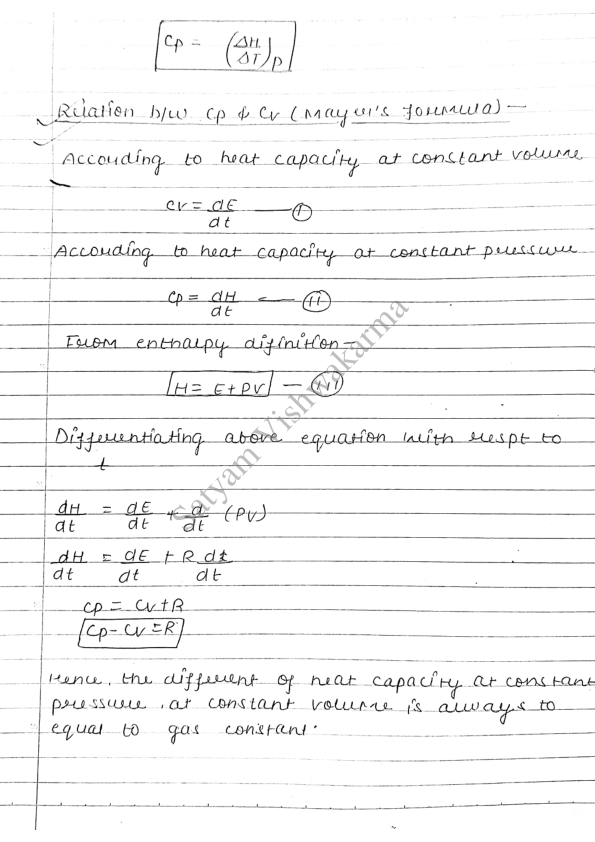 Cp = (ΔH/ΔT)p
Relation b/w Cp & Cv (Mayer's formula) —
According to heat capacity at constant volume
Cv = dE/dt — (i)
According to heat capacity at constant pressure
Cp = dH/dt — (ii)
From enthalpy difinition —
H = E + PV — (iii)
Differentiating above equation with respt to
t
dH/dt = dE/dt + d/dt (PV)
dH/dt = dE/dt + R dt/dt
Cp = Cv + R
Cp - Cv = R
Hence, the different of heat capacity at constant
pressure, at constant volume is always to
equal to gas constant.
Satyam Vishwakarma